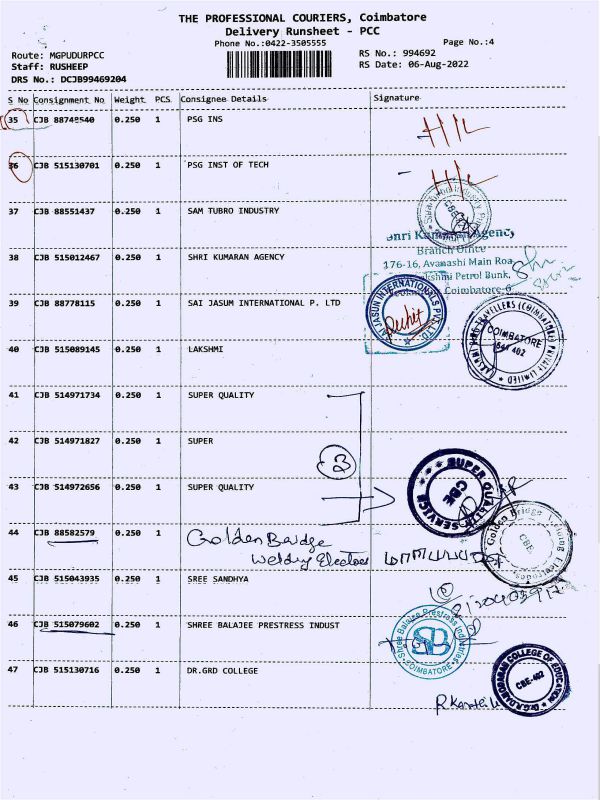 THE PROFESSIONAL COURIERS, Coimbatore
Delivery Runsheet - PCC
Phone No.:0422-3505555
Page No.:4
Route: MGPUDURPCC
RS No.: 994692
Staff: RUSHEEP
RS Date: 06-Aug-2022
DRS No.: DCJB99469204
S No Consignment No Weight PCS Consignee Details Signature
35 CJB 88748540 0.250 1 PSG INS
36 CJB 515130701 0.250 1 PSG INST OF TECH
37 CJB 88551437 0.250 1 SAM TUBRO INDUSTRY
Shri Kumaran Agency
Branch Office
38 CJB 515012467 0.250 1 SHRI KUMARAN AGENCY
176-16, Avanashi Main Roa
Petrol Bunk,
Coimbatore-6
39 CJB 88778115 0.250 1 SAI JASUM INTERNATIONAL P. LTD
COIMBATORE
40 CJB 515089145 0.250 1 LAKSHMI
41 CJB 514971734 0.250 1 SUPER QUALITY
42 CJB 514971827 0.250 1 SUPER
3
43 CJB 514972656 0.250 1 SUPER QUALITY
SUPER QUALITY SERVICE
CBE
44 CJB 88582579 0.250 1 Golden Bridge
Welding Electrodes
CBE
45 CJB 515043935 0.250 1 SREE SANDHYA
46 CJB 515079602 0.250 1 SHREE BALAJEE PRESTRESS INDUST
Shree Balajee Prestress Industries
SB
COIMBATORE
47 CJB 515130716 0.250 1 DR.GRD COLLEGE
CBE-402